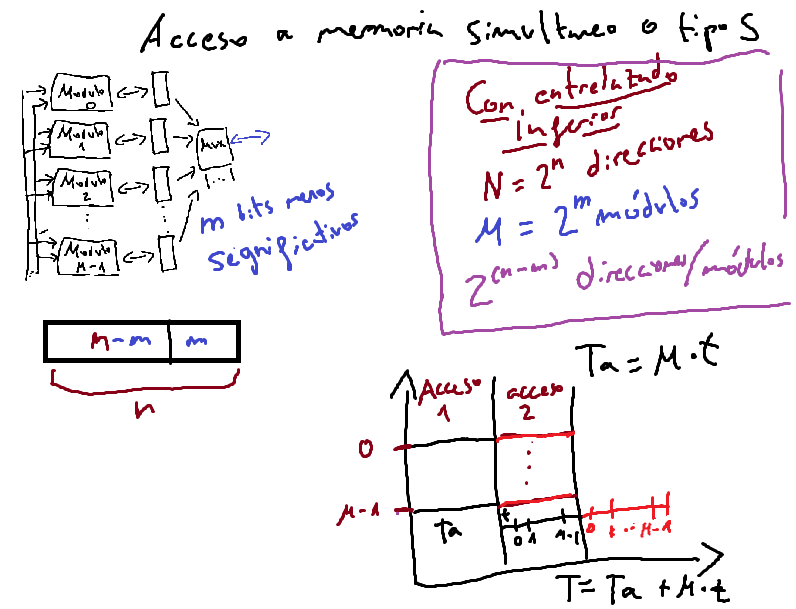 Acceso a memoria simultaneo o tipo S
Modulo
0
Modulo
1
Modulo
2
Modulo
M-1
MUX
...
m bits menos
significativos
Con entrelazado
inferior
N = 2^n direcciones
M = 2^m módulos
2^(n-m) direcciones/módulos
n-m m
n
Ta = M·t
Acceso
1
acceso
2
0
M-1
Ta
t
0 1 M-1
0 1 ... M-1
T = Ta + M·t